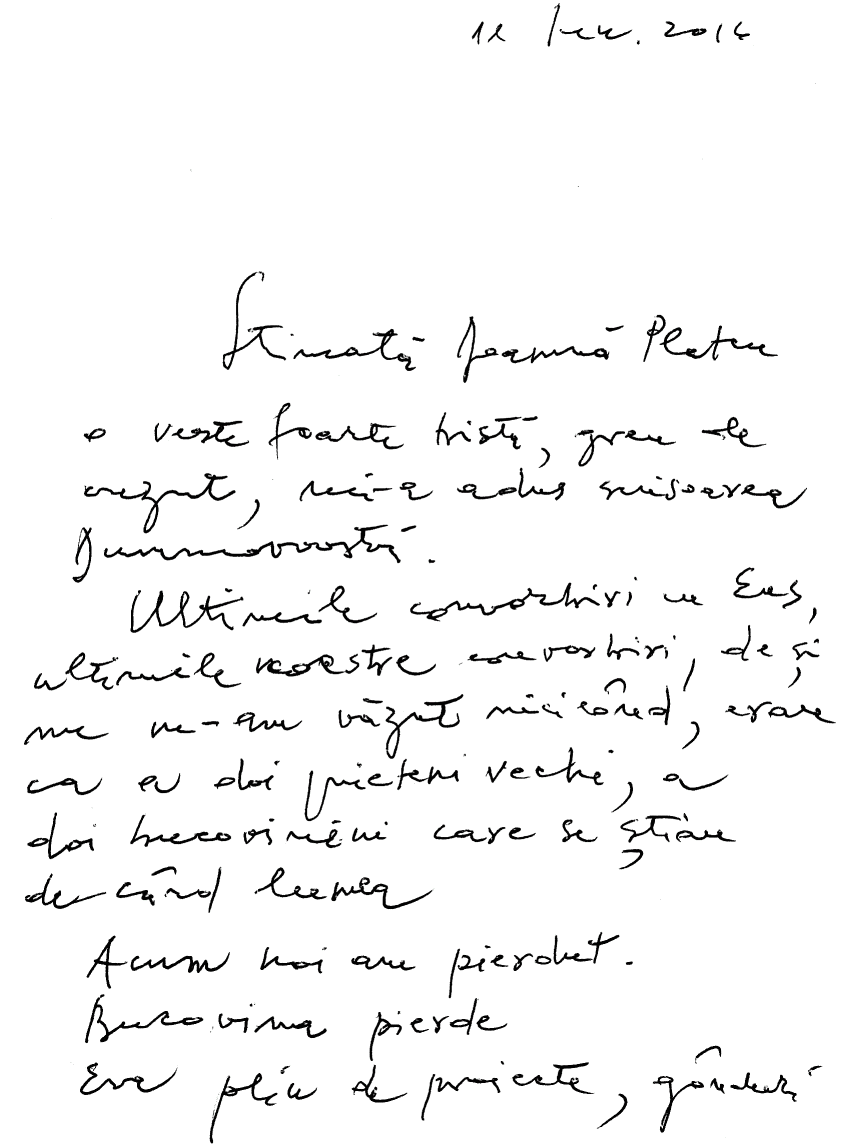 2014
Stimată Doamnă
o veste foarte tristă, greu de
crezut, mi-a adus scrisoarea
Dumneavoastră.
Ultimile convorbiri cu
ultimile noastre convorbiri, de și
nu ne-am văzut nicicând, erau
ca a doi prieteni vechi, a
doi bucovineni care se știau
de când lumea
Acum noi am pierdut.
Bucovina pierde
Era plin de proiecte, gânduri